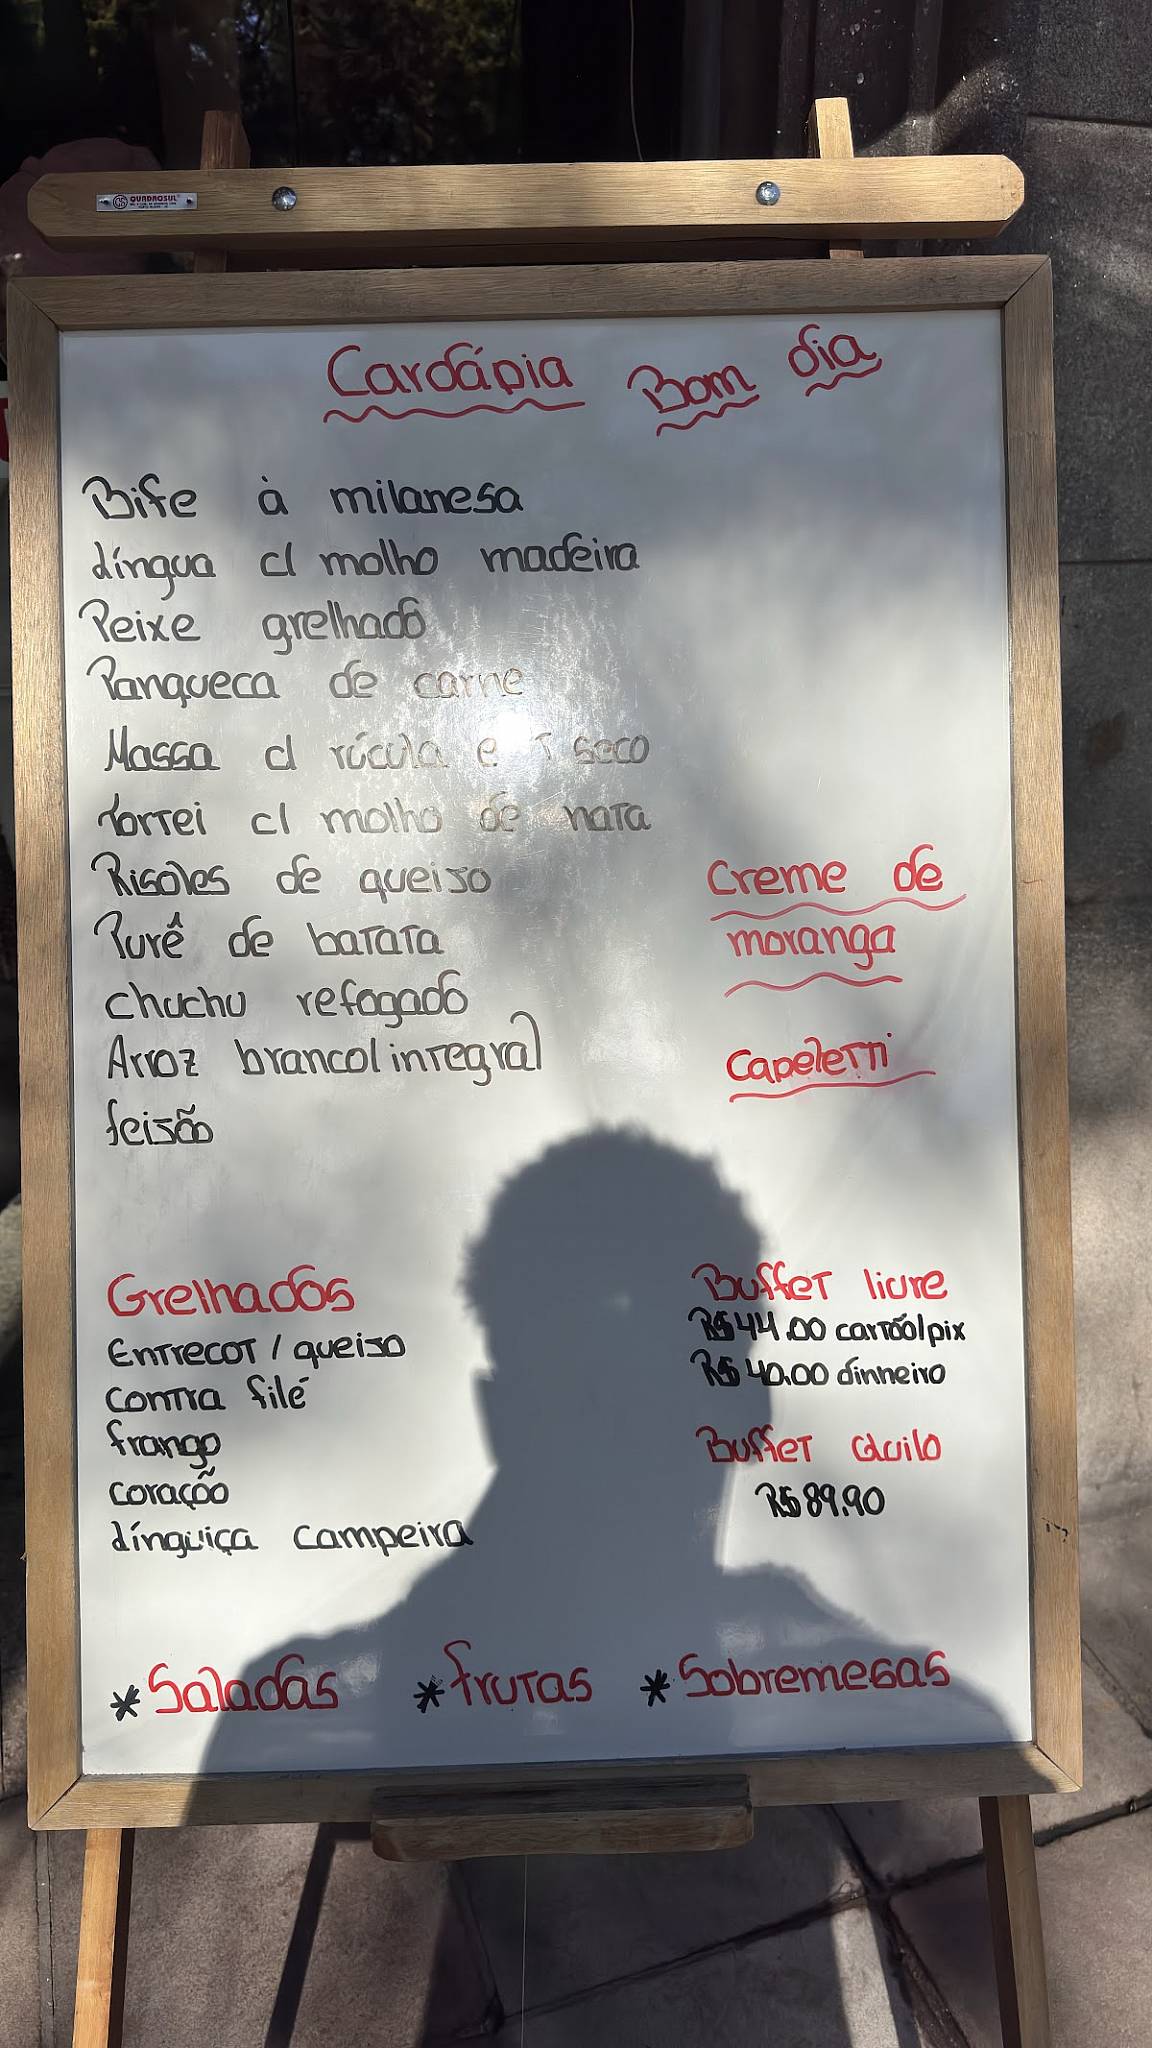 QUADROSUL
Cardápia Bom dia
Bife à milanesa
Língua c/ molho madeira
Peixe grelhado
Panqueca de carne
Massa c/ rúcula e T seco
Tortei c/ molho de nata
Risoles de queijo
Purê de batata
chuchu refogado
Arroz branco/integral
feijão
Creme de
moranga
Capeletti
Grelhados
Entrecot / queijo
Contra filé
frango
coração
Línguiça campeira
Buffet livre
R$44.00 cartão/pix
R$40.00 dinheiro
Buffet Quilo
R$89.90
*Saladas *frutas *Sobremesas